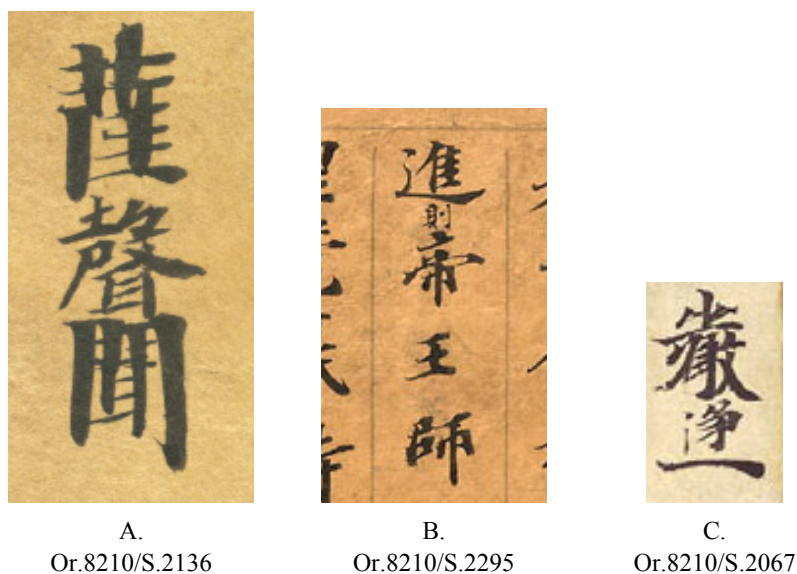 薩聲聞
進則帝王師
嚴浄一
A.
Or.8210/S.2136
B.
Or.8210/S.2295
C.
Or.8210/S.2067